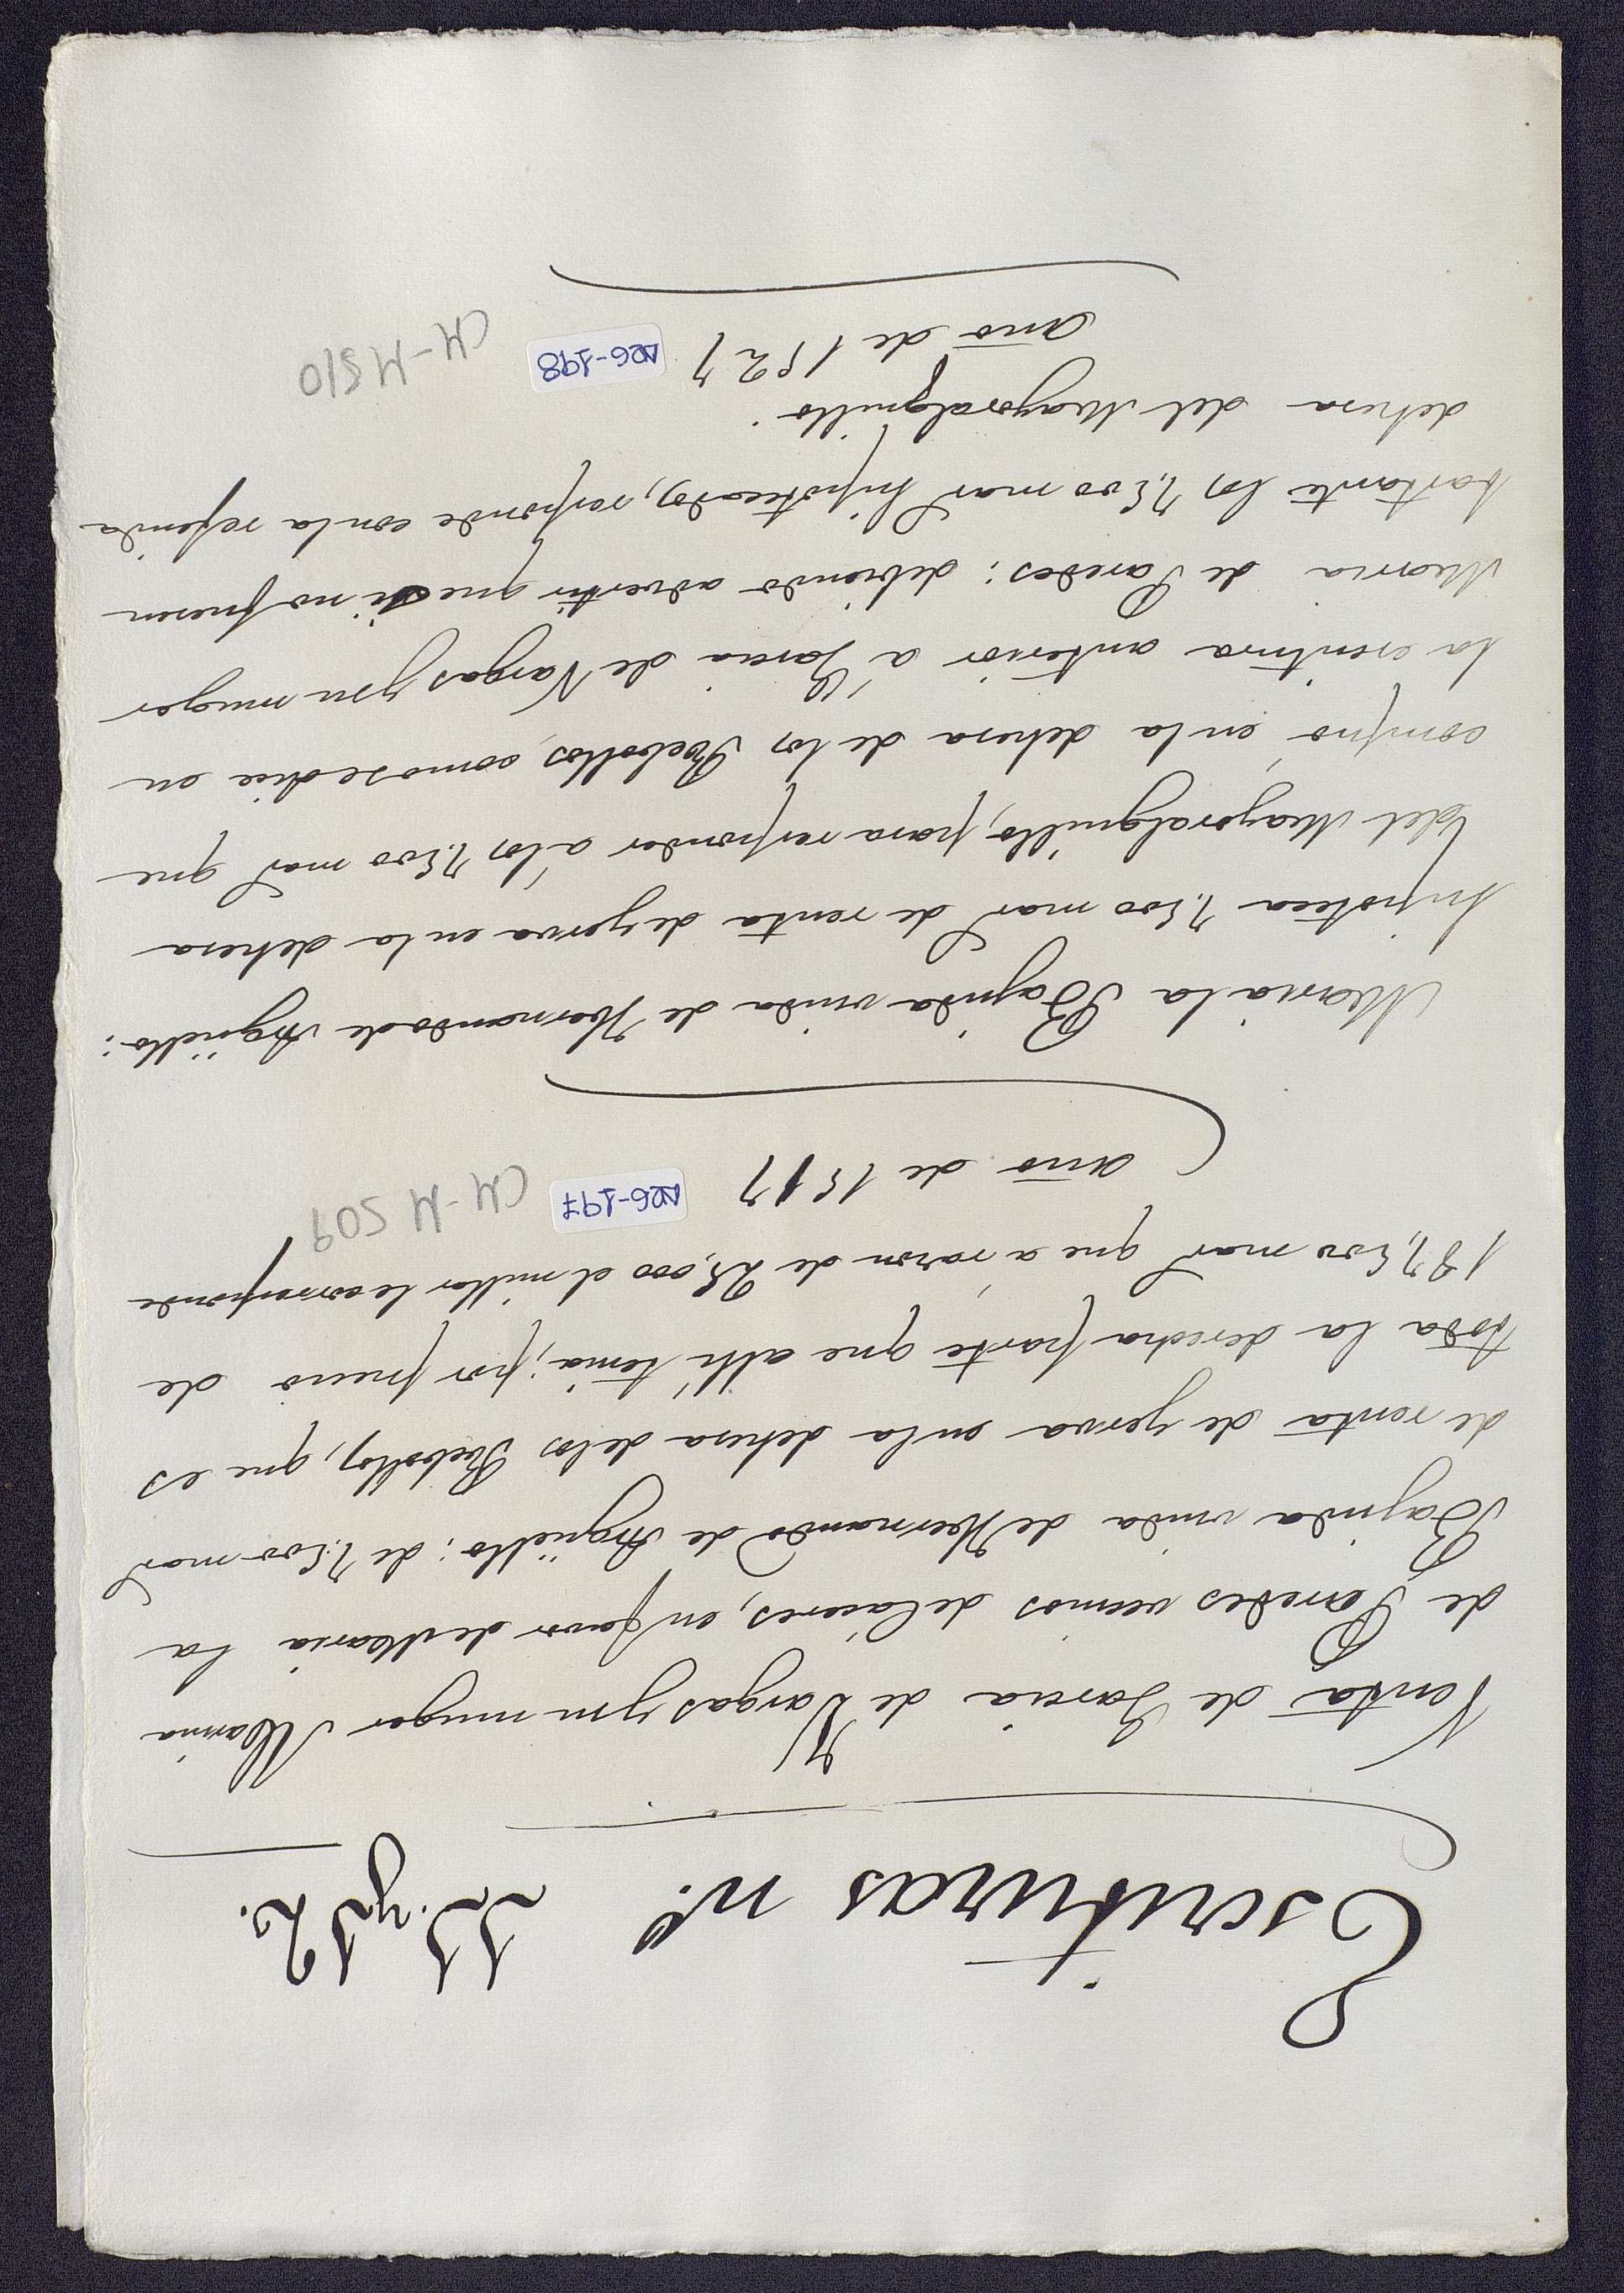 Escrituras nº. 11. y 12.
Venta de Garcia de Vargas y su muger Maria
de Paredes vecinos de Caceres, en favor de Maria la
Bajida viuda de Hernando de Argüello: de 7.500 marˢ
de renta de yerva en la dehesa de los Rebollos, que es
toda la derecha parte que allí tenia; por precio de
187,500 marˢ que a razon de 25,000 el millar le corresponde
año de 1517
ARG-197
CM-M 509
Maria la Bajida viuda de Hernando de Argüello:
hipoteca 7,500 marˢ de renta de yerva en la dehesa
del Mayoralguillo, para responder á los 7,500 marˢ que
compró en la dehesa de los Rebollos, como se dice en
la escritura anterior á Garcia de Vargas y su muger
Maria de Paredes: debiendo advertir que si no fuesen
bastante los 7,500 marˢ hipotecados, responde con la referida
dehesa del Mayoralguillo.
año de 1527
ARG-198
CM-M 510